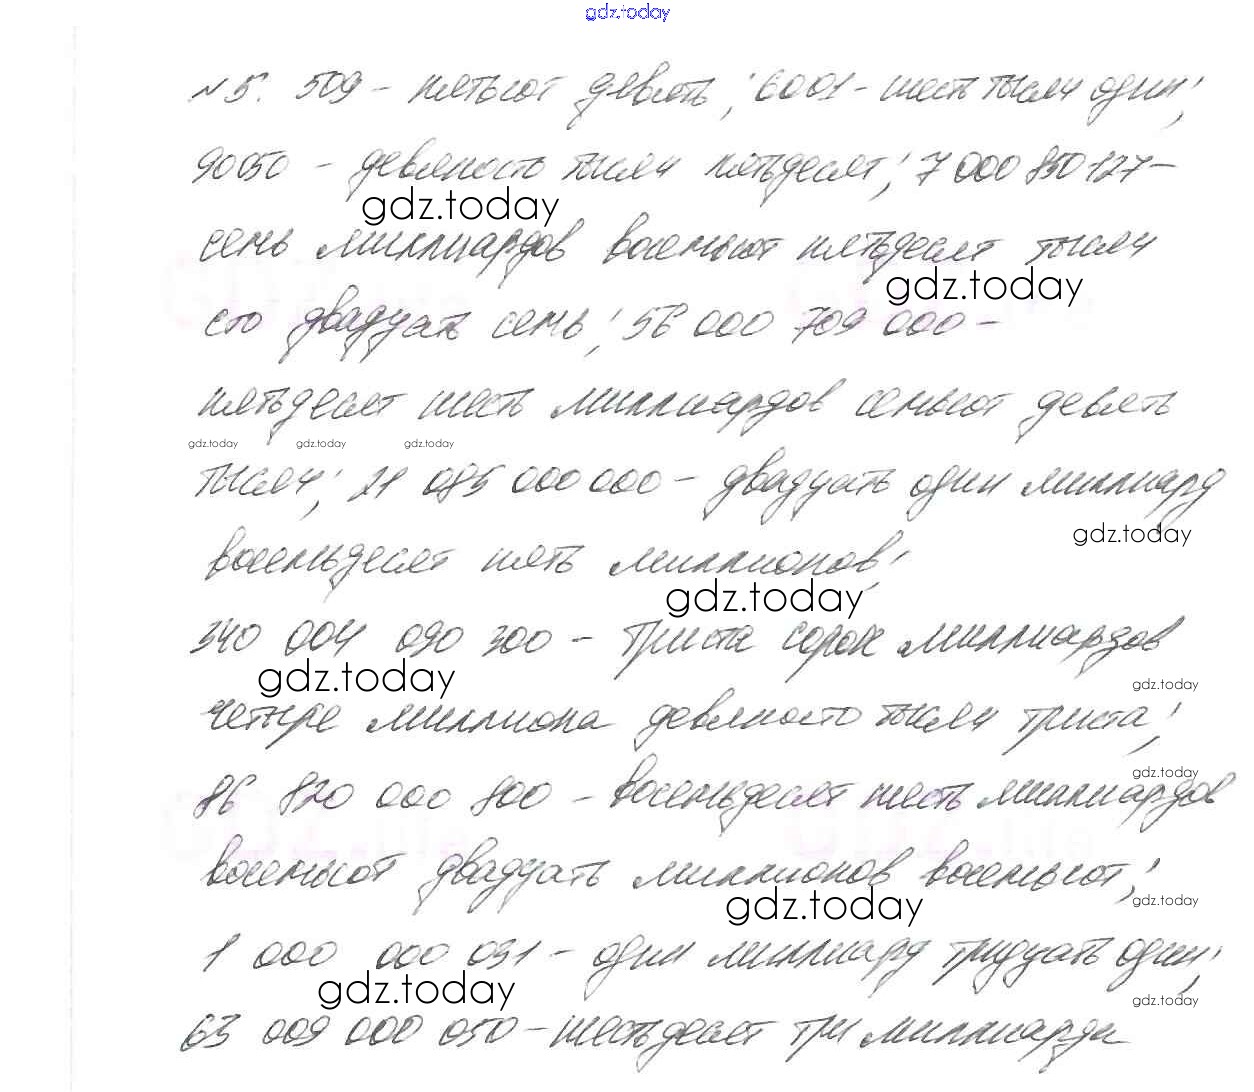 gdz.today
№5. 509 – пятьсот девять; 6001 – шесть тысяч один;
90050 – девяносто тысяч пятьдесят; 7 000 850 127 –
gdz.today
семь миллиардов восемьсот пятьдесят тысяч
gdz.today
сто двадцать семь; 56 000 709 000 –
пятьдесят шесть миллиардов семьсот девять
gdz.today gdz.today gdz.today
тысяч; 21 085 000 000 – двадцать один миллиард
gdz.today
восемьдесят пять миллионов;
gdz.today
340 004 090 300 – триста сорок миллиардов
gdz.today
gdz.today
четыре миллиона девяносто тысяч триста;
gdz.today
86 820 000 800 – восемьдесят шесть миллиардов
восемьсот двадцать миллионов восемьсот;
gdz.today
gdz.today
1 000 000 031 – один миллиард тридцать один;
gdz.today
gdz.today
63 009 000 050 – шестьдесят три миллиарда